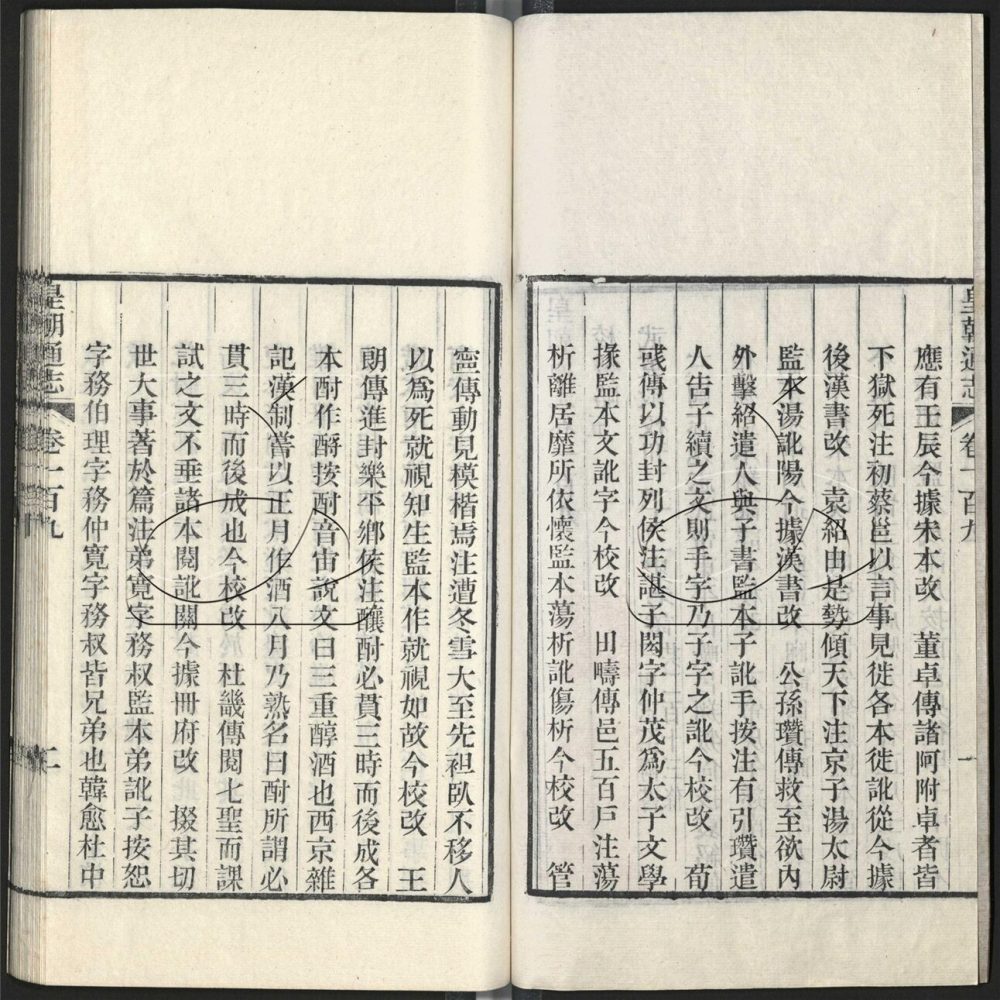 應有王辰今據宋本改　董卓傳諸阿附卓者皆
下獄死注初蔡邕以言事見徙各本徙訛從今據
後漢書改　袁紹由是勢傾天下注京子湯太尉
監本湯訛陽今據漢書改　公孫瓚傳救至欲內
外擊紹遣人與子書監本子訛手按注有引瓚遣
人告子續之文則手字乃子字之訛今校改　荀
彧傳以功封列侯注諶子閎字仲茂爲太子文學
掾監本文訛字今校改　田疇傳邑五百戶注蕩
析離居靡所依懷監本蕩析訛傷析今校改　管
皇朝通志
卷一百九
一
寧傳動見模楷焉注遭冬雪大至先袒臥不移人
以爲死就視知生監本作就視如故今校改　王
朗傳進封樂平鄉侯注釀酎必貫三時而後成各
本酎作酹按酎音宙說文曰三重醇酒也西京雜
記漢制嘗以正月作酒八月乃熟名曰酎所謂必
貫三時而後成也今校改　杜畿傳閱七聖而課
試之文不垂諸本閱訛關今據冊府改　掇其切
世大事著於篇注弟寬字務叔監本弟訛子按恕
字務伯理字務仲寬字務叔皆兄弟也韓愈杜中
皇朝通志
卷一百九
二